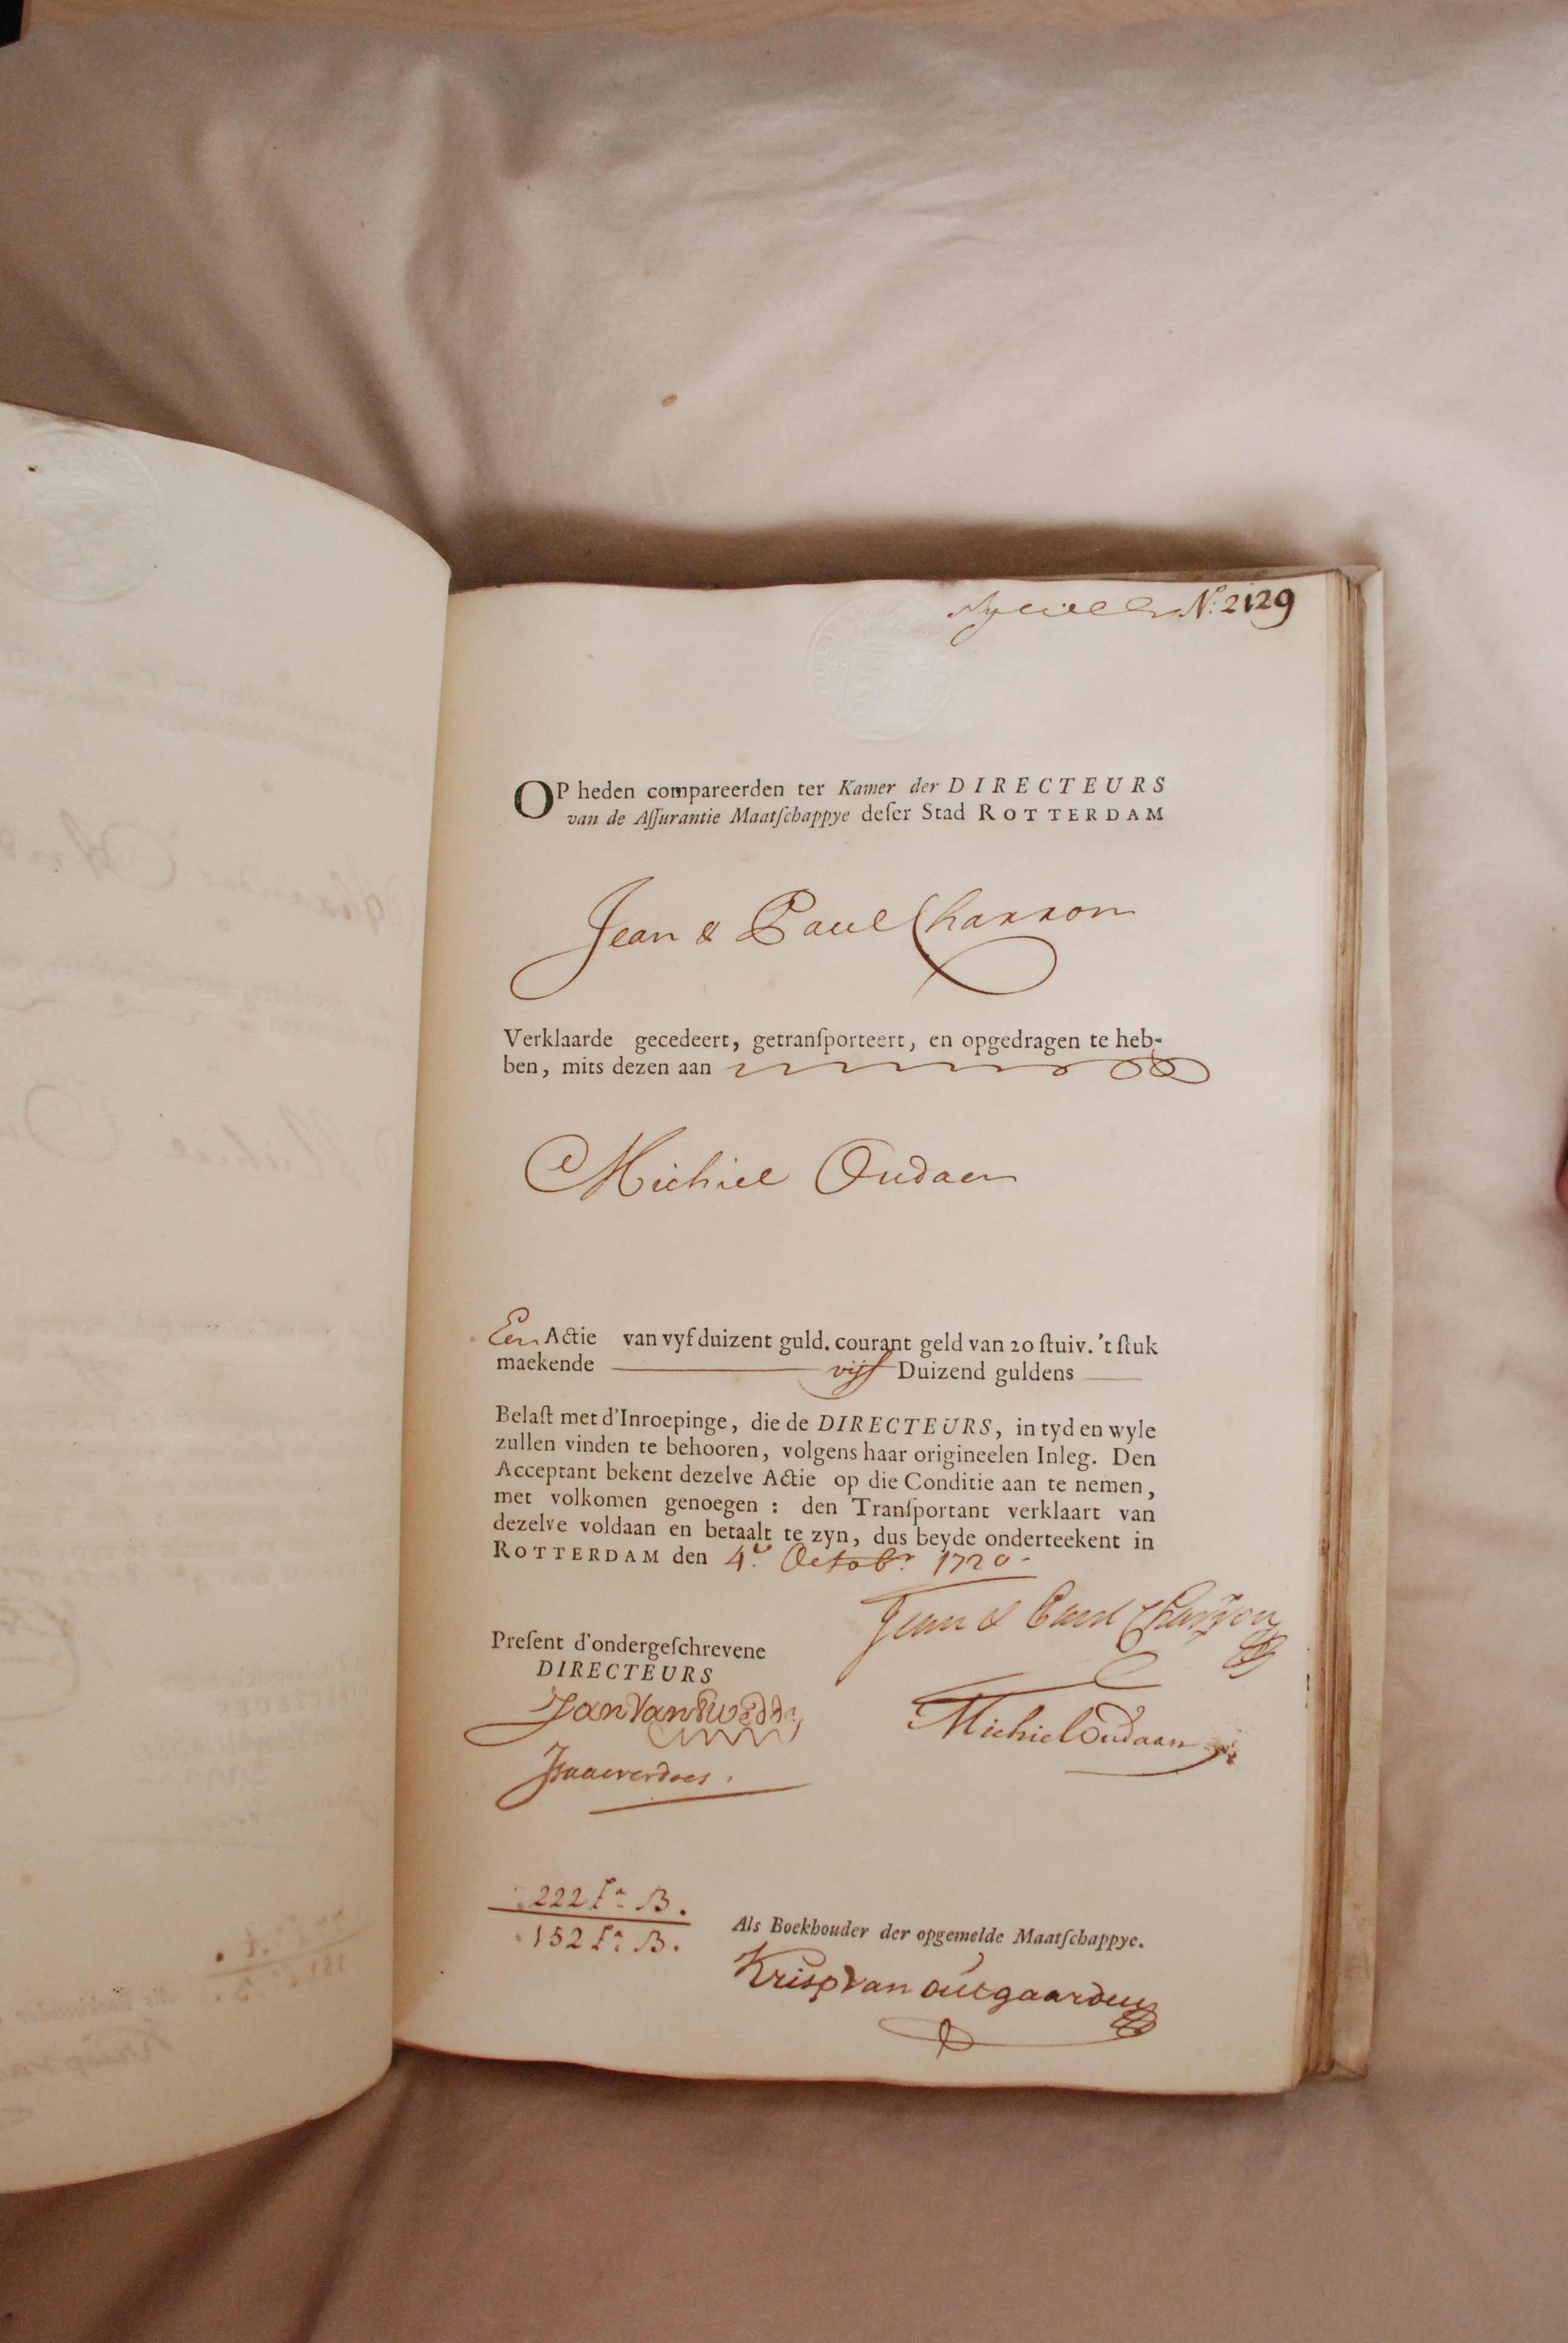 N.º 2129
OP heden compareerden ter Kamer der DIRECTEURS
van de Aſſurantie Maatſchappye deſer Stad ROTTERDAM
Jean & Paul Charron
Verklaarde gecedeert, getranſporteert, en opgedragen te heb-
ben, mits dezen aan
Michiel Oudaen
Een Actie van vyf duizent guld. courant geld van 20 ſtuiv. 't ſtuk
maekende vijf Duizend guldens
Belaſt met d'Inroepinge, die de DIRECTEURS, in tyd en wyle
zullen vinden te behooren, volgens haar origineelen Inleg. Den
Acceptant bekent dezelve Actie op die Conditie aan te nemen,
met volkomen genoegen : den Tranſportant verklaart van
dezelve voldaan en betaalt te zyn, dus beyde onderteekent in
ROTTERDAM den 4.e Octobr 1720
Jean & Paul Charron
Preſent d'ondergeſchrevene
DIRECTEURS
Michiel Oudaan
222 Lа B.
152 Lа B.
Als Boekhouder der opgemelde Maatſchappye.
Krisp van outgaarden